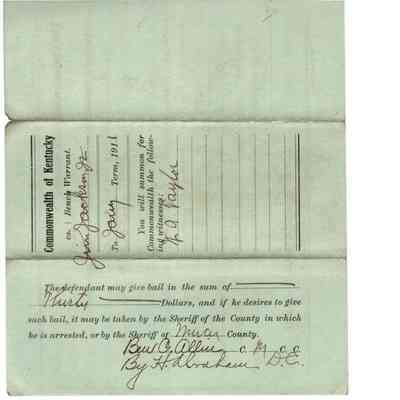 Commonwealth of Kentucky
vs. } Bench Warrant.
Jim Jackson Jr
To Jany Term, 1911
You will summon for
Commonwealth the follow-
ing witnesses:
Taylor
The defendant may give bail in the sum of
Thirty Dollars, and if he desires to give
such bail, it may be taken by the Sheriff of the County in which
he is arrested, or by the Sheriff of County.
Ben C. c. c. c.
By H. Abraham D.C.